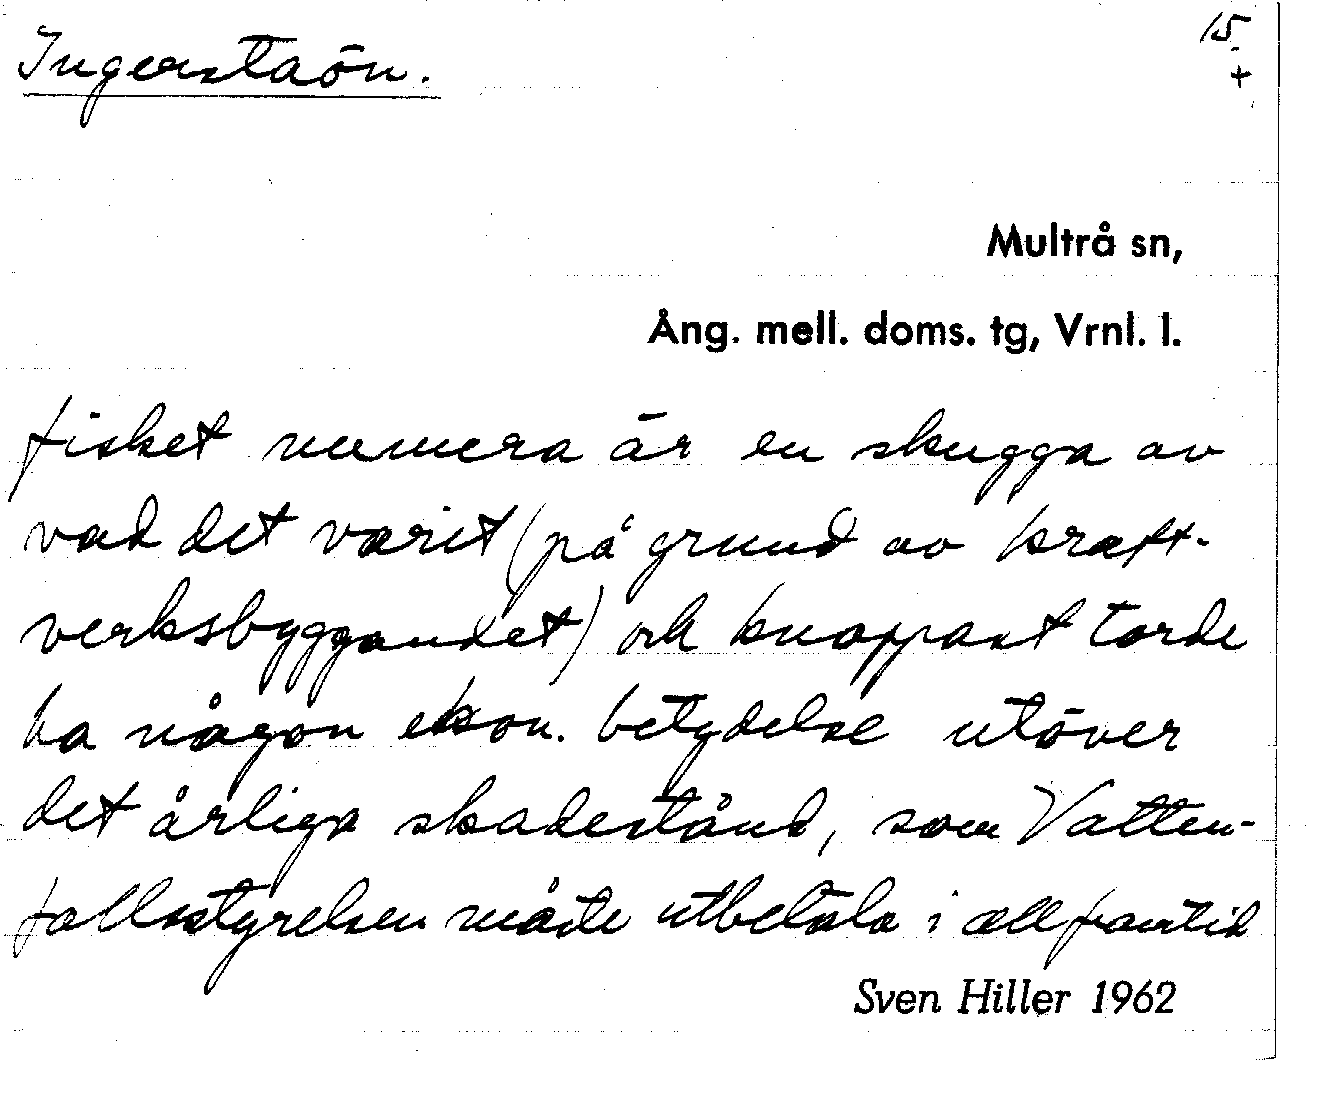 Ingerstaön. 15.
+
Multrå sn,
Ång. mell. doms. tg, Vrnl. l.
fisket numera är en skugga av
vad det varit (på grund av kraft-
verksbyggandet) och knappast torde
ha någon ekon. betydelse utöver
det årliga skadestånd, som Vatten-
fallsstyrelsen måste utbetala i all framtid
Sven Hiller 1962